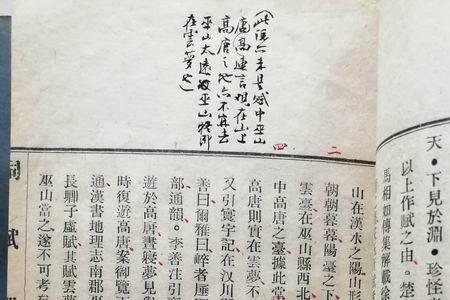 天•下見於淵•珍怪
以上作賦之由。楚
馬相如傳集解載徐
(此說亦未是賦中巫山
高連言相在山上
高唐之地亦不算去
巫山太遠故巫山將即
在雲夢也)
二
四
山在漢水之陽山形
朝朝暮暮陽臺之下
雲臺在巫山縣西北
中高唐之臺據此當
高唐則實在雲夢不
又引寰宇記在汊川
善曰爾雅曰崒者厜
部通韻。李善注引
遊於高唐晝寢夢見
時復遊高唐案御覽
通漢書地理志南郡
長卿子虛賦其賦雲夢
巫山當之遂不可考
詞賦